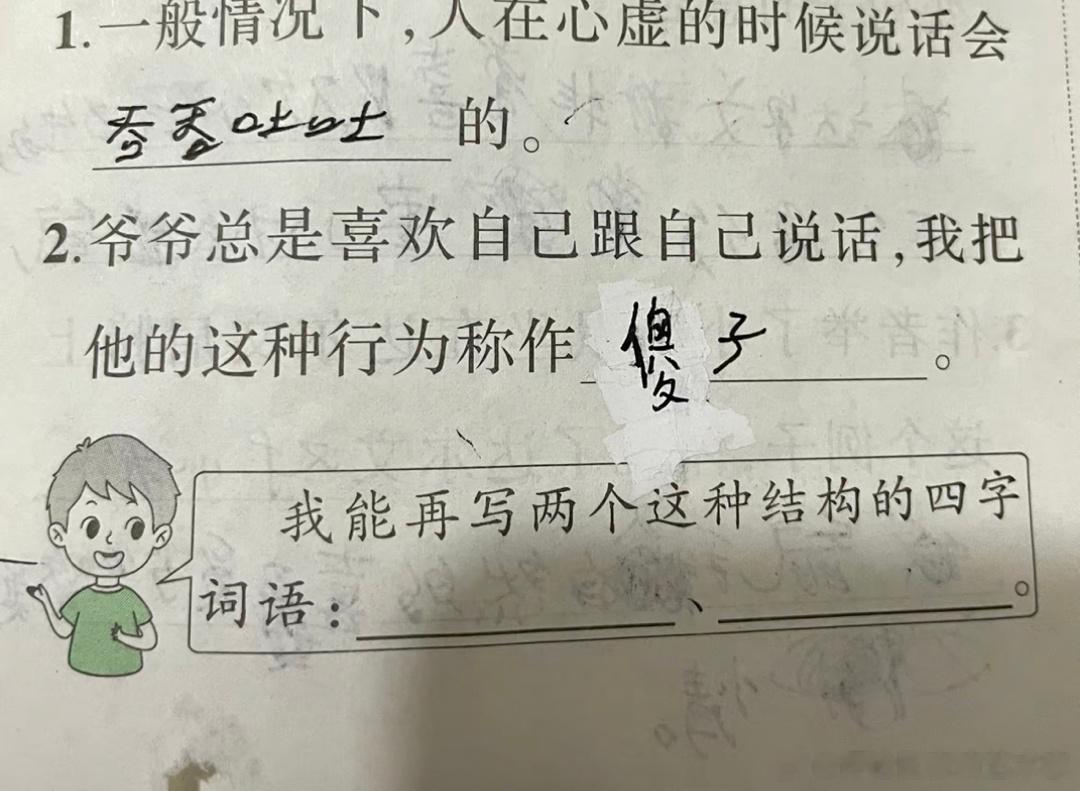 1.一般情况下，人在心虚的时候说话会
吞吞吐吐的。
2.爷爷总是喜欢自己跟自己说话，我把
他的这种行为称作傻子。
我能再写两个这种结构的四字
词语：、。